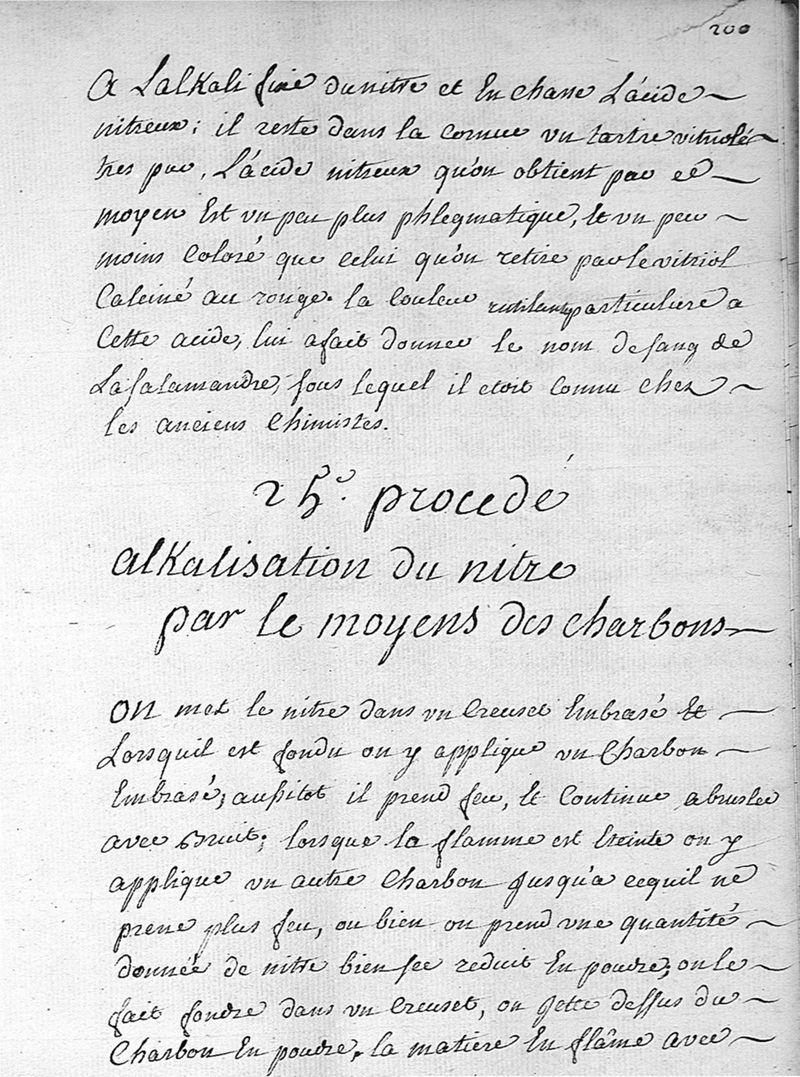 200
A Lalkali fixe du nitre et En chasse L'acide
nitreux; il reste dans la cornue un tartre vitriolé
tres pur, L'acide nitreux qu'on obtient par ce
moyen Est un peu plus phlegmatique, Et un peu
moins Coloré que Celui qu'on retire par le vitriol
Calciné au rouge. la Couleur rutilante particuliere a
Cette acide, lui a fait donner le nom de sang de
La salamandre, sous lequel il etoit Connu chez
les anciens Chimistes.
procedé
alkalisation du nitre
par le moyens des charbons
On met le nitre dans un Creuset Embrasé Et
Lorsquil est fondu on y applique un Charbon
Embrasé; aussitot il prend feu, Et Continue a brusler
avec Bruit; lorsque la flamme est Eteinte on y
applique un autre Charbon Jusqu'a cequil ne
prene plus feu, ou bien on prend une quantité
donnée de nitre bien sec reduit En poudre, on le
fait fondre dans un Creuset, on Jette dessus du
Charbon En poudre, la matiere En flâme avec